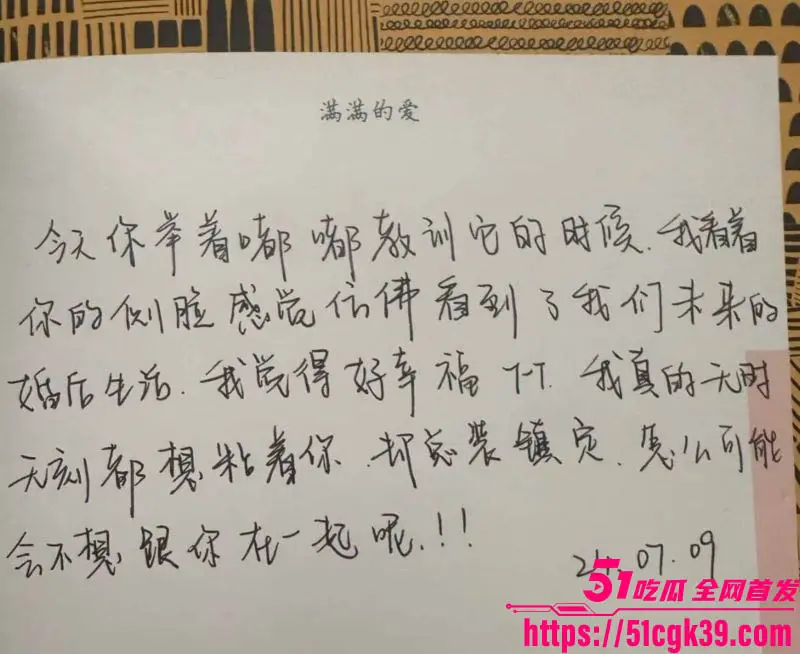 满满的爱
今天你举着嘟嘟教训它的时候.我看着
你的侧脸感觉仿佛看到了我们未来的
婚后生活.我觉得好幸福T-T.我真的无时
无刻都想粘着你.却总装镇定.怎么可能
会不想跟你在一起呢.!!
24.07.09
51吃瓜 全网首发
https://51cgk39.com